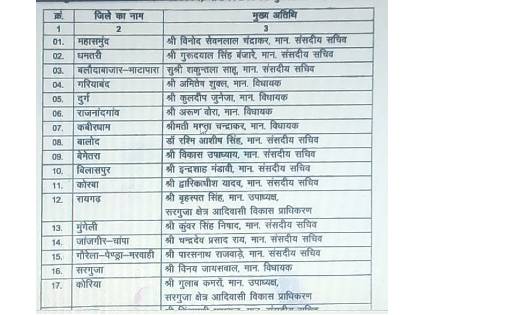 क्रं. जिले का नाम मुख्य अतिथि
1 2 3
01. महासमुंद श्री विनोद सेवनलाल चंद्राकर, मान. संसदीय सचिव
02. धमतरी श्री गुरूदयाल सिंह बंजारे, मान. संसदीय सचिव
03. बलौदाबाजार–भाटापारा सुश्री शकुन्तला साहू, मान. संसदीय सचिव
04. गरियाबंद श्री अमितेष शुक्ल, मान. विधायक
05. दुर्ग श्री कुलदीप जुनेजा, मान. विधायक
06. राजनांदगांव श्री अरूण वोरा, मान. विधायक
07. कबीरधाम श्रीमती ममता चन्द्राकर, मान. विधायक
08. बालोद डॉ रश्मि आशीष सिंह, मान. संसदीय सचिव
09. बेमेतरा श्री विकास उपाध्याय, मान. संसदीय सचिव
10. बिलासपुर श्री इन्द्रशाह मंडावी, मान. संसदीय सचिव
11. कोरबा श्री द्वारिकाधीश यादव, मान. संसदीय सचिव
12. रायगढ़ श्री बृहस्पत सिंह, मान. उपाध्यक्ष,
सरगुजा क्षेत्र आदिवासी विकास प्राधिकरण
13. मुंगेली श्री कुंवर सिंह निषाद, मान. संसदीय सचिव
14. जांजगीर–चांपा श्री चन्द्रदेव प्रसाद राय, मान. संसदीय सचिव
15. गौरेला–पेण्ड्रा–मरवाही श्री पारसनाथ राजवाड़े, मान. संसदीय सचिव
16. सरगुजा श्री विनय जायसवाल, मान. विधायक
17. कोरिया श्री गुलाब कमरों, मान. उपाध्यक्ष,
सरगुजा क्षेत्र आदिवासी विकास प्राधिकरण